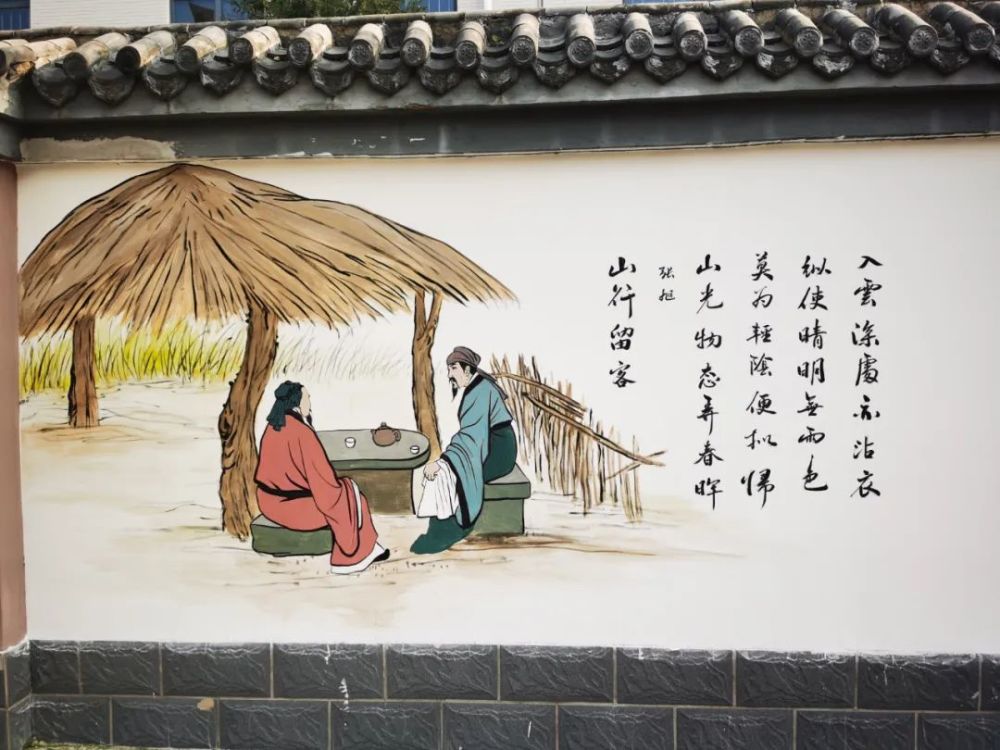 山行留客
张旭
山光物态弄春晖
莫为輕陰便拟歸
纵使晴明無雨色
入雲深處亦沾衣